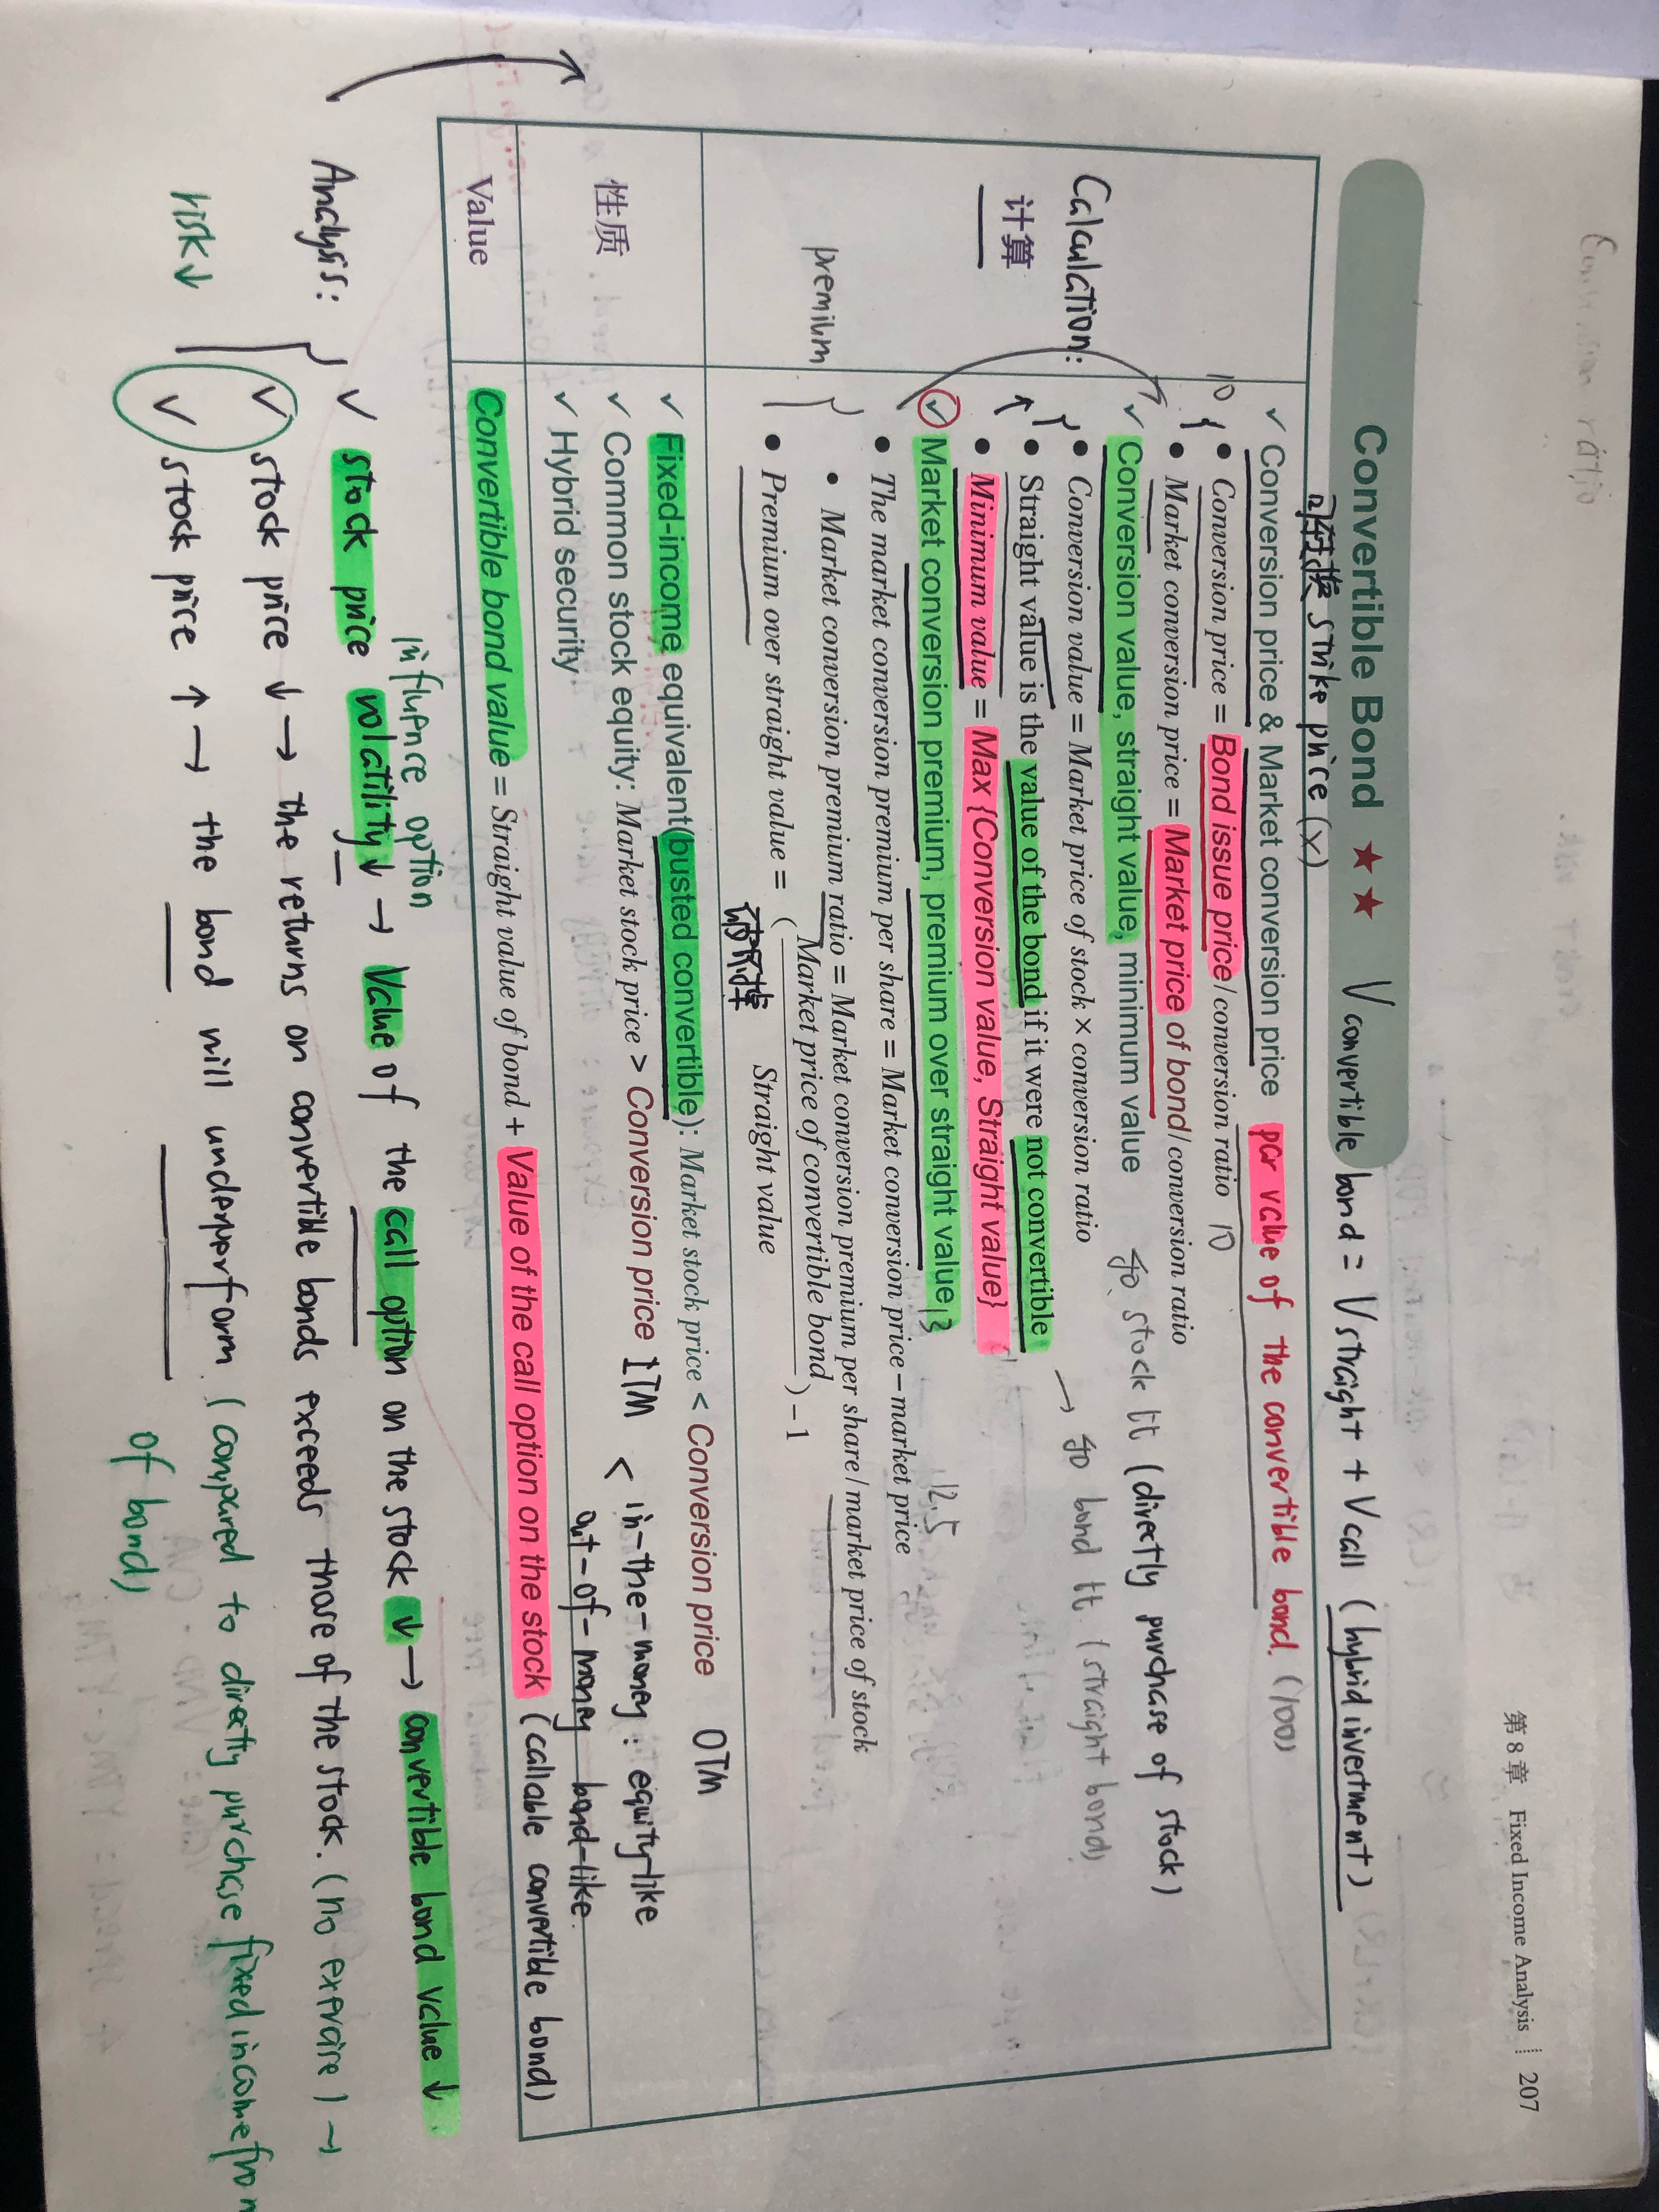 第 8 章 Fixed Income Analysis 207
Convertible Bond ★★ V convertible bond = Vstraight + Vcall (hybrid investment)
strike price (x)
Calculation:
计算
✓ Conversion price & Market conversion price par value of the convertible bond. (100)
10 { • Conversion price = Bond issue price / conversion ratio 10
• Market conversion price = Market price of bond / conversion ratio
✓ Conversion value, straight value, minimum value
• Conversion value = Market price of stock × conversion ratio
(directly purchase of stock)
• Straight value is the value of the bond if it were not convertible
(straight bond)
• Minimum value = Max {Conversion value, Straight value}
✓ Market conversion premium, premium over straight value 13
12.5
• The market conversion premium per share = Market conversion price − market price
premium
• Market conversion premium ratio = Market conversion premium per share / market price of stock
• Premium over straight value = (Market price of convertible bond / Straight value) − 1
性质
✓ Fixed-income equivalent(busted convertible): Market stock price < Conversion price OTM
✓ Common stock equity: Market stock price > Conversion price ITM < in-the-money: equity-like
out-of-money bond-like.
✓ Hybrid security
Value
Convertible bond value = Straight value of bond + Value of the call option on the stock (callable convertible bond)
influence option
Analysis: ✓ stock price volatility ↓ → Value of the call option on the stock ↓ → convertible bond value ↓
✓ stock price ↓ → the returns on convertible bonds exceeds those of the stock. (no exercise) →
risk ↓
✓ stock price ↑ → the bond will underperform (compared to directly purchase fixed income from
of bond)